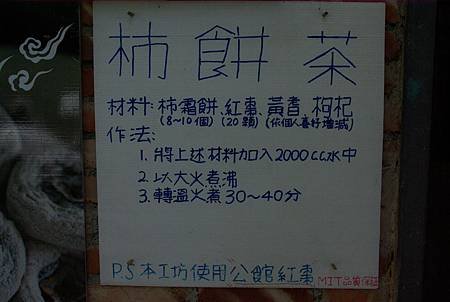 柿餅茶
材料:柿霜餅、紅棗、黃耆、枸杞
(8~10個) (20顆) (依個人喜好增減)
作法:
1. 將上述材料加入2000c.c.水中
2. 以大火煮沸
3. 轉溫火煮30~40分
P.S 本工坊使用公館紅棗
MIT品質保証